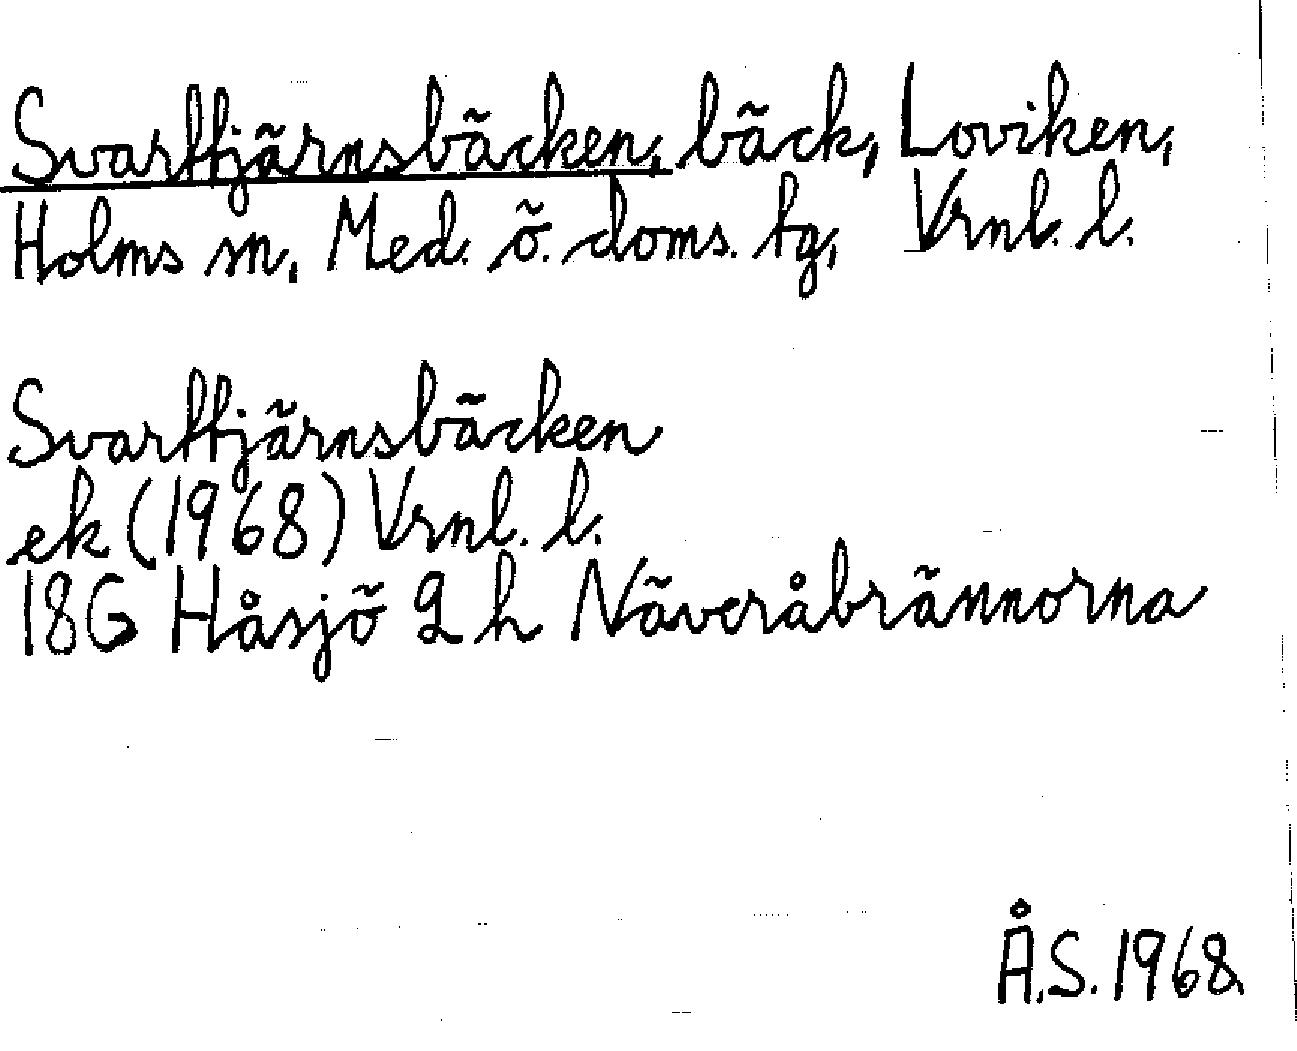 Svarttjärnsbäcken, bäck, Loviken,
Holms sn, Med. ö. doms. tg, Vrnl. l.
Svarttjärnsbäcken
ek (1968) Vrnl. l.
18G Håsjö 2 h Näveråbrännorna
Å.S. 1968